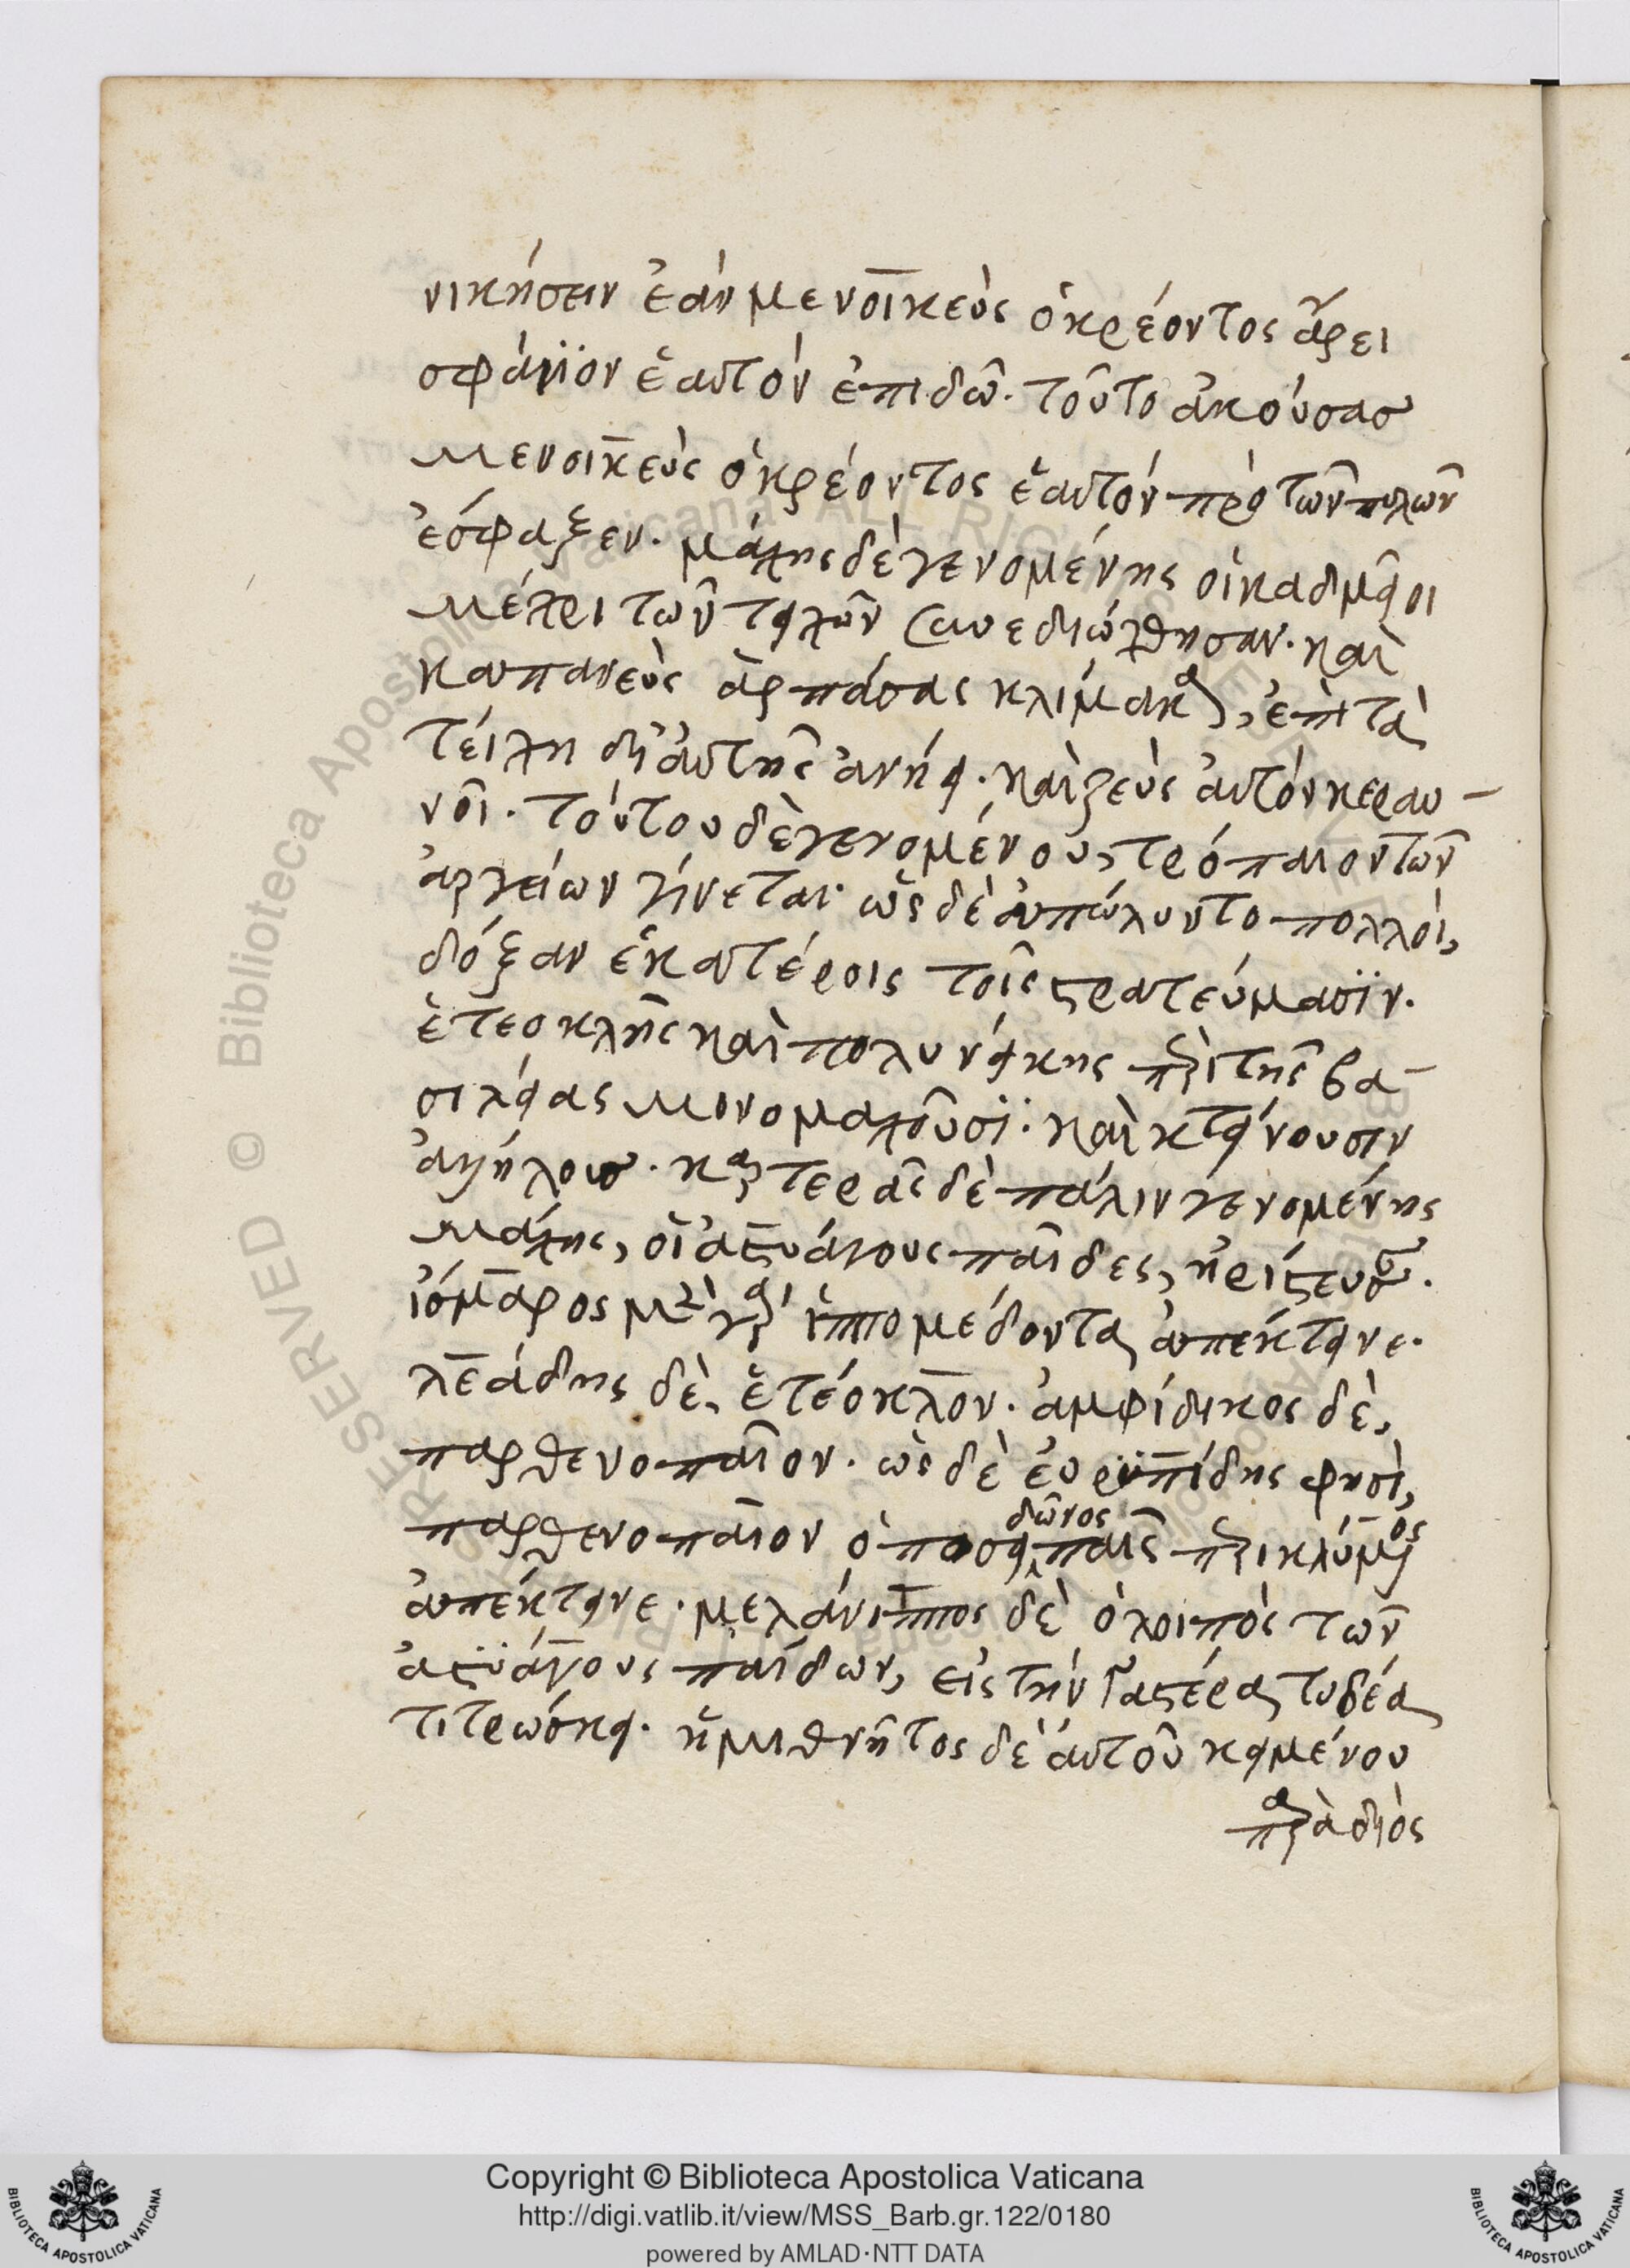 νικήσειν ἐὰν μενοικεὺς ὁ κρέοντος ἄρει
σφάγϊον ἑαυτὸν ἐπιδῶ. τοῦτο ἀκούσας
μενοικεὺς ὁ κρέοντος ἑαυτὸν πρὸ τῶν πυλῶν
ἔσφαξεν. μάχης δὲ γενομένης οἱ καδμεῖοι
μέχρι τῶν τειχῶν συνεδιώχθησαν. καὶ
καπανεὺς ἁρπάσας κλίμακα, ἐπὶ τὰ
τείχη δι' αὐτῆς ἀνήει. καὶ ζεὺς αὐτὸν κεραυ-
νοῖ. τούτου δὲ γενομένου, τρόπαιον τῶν
ἀργείων γίνεται. ὡς δὲ ἀπώλυντο πολλοὶ,
δόξαν ἑκατέροις τοῖς στρατεύμασϊν.
ἐτεοκλῆς καὶ πολυνείκης περὶ τῆς βα-
σιλείας μονομαχοῦσϊ. καὶ κτείνουσιν
ἀλλήλους. καρτερᾶς δὲ πάλιν γενομένης
μάχης, οἱ ἀστυάγους παῖδες, ἠρίστευσαν.
ἴσμαρος μὲν γὰρ ἱππομέδοντα ἀπέκτεινε.
λεάδης δὲ, ἐτέοκλον. ἀμφίδικος δὲ,
παρθενοπαῖον. ὡς δὲ εὐριπίδης φησὶ,
παρθενοπαῖον ὁ ποσειδῶνος παῖς περικλύμενος
ἀπέκτεινε. μελάνιππος δὲ ὁ λοιπὸς τῶν
ἀστϋάγους παίδων, εἰς τὴν γαστέρα τυδέα
τιτρώσκει. ἡμιθνῆτος δὲ αὐτοῦ κειμένου
παρὰ διὸς
Copyright © Biblioteca Apostolica Vaticana
http://digi.vatlib.it/view/MSS_Barb.gr.122/0180
powered by AMLAD·NTT DATA